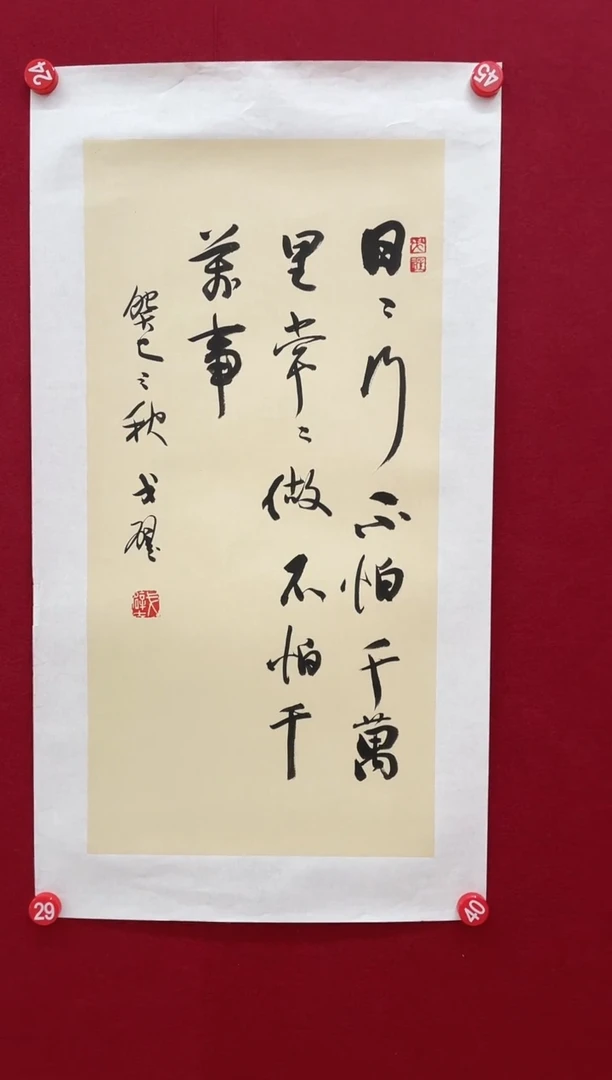 日〻行不怕千萬
里常〻做不怕千
萬事
癸巳之秋 戈
24
45
29
40